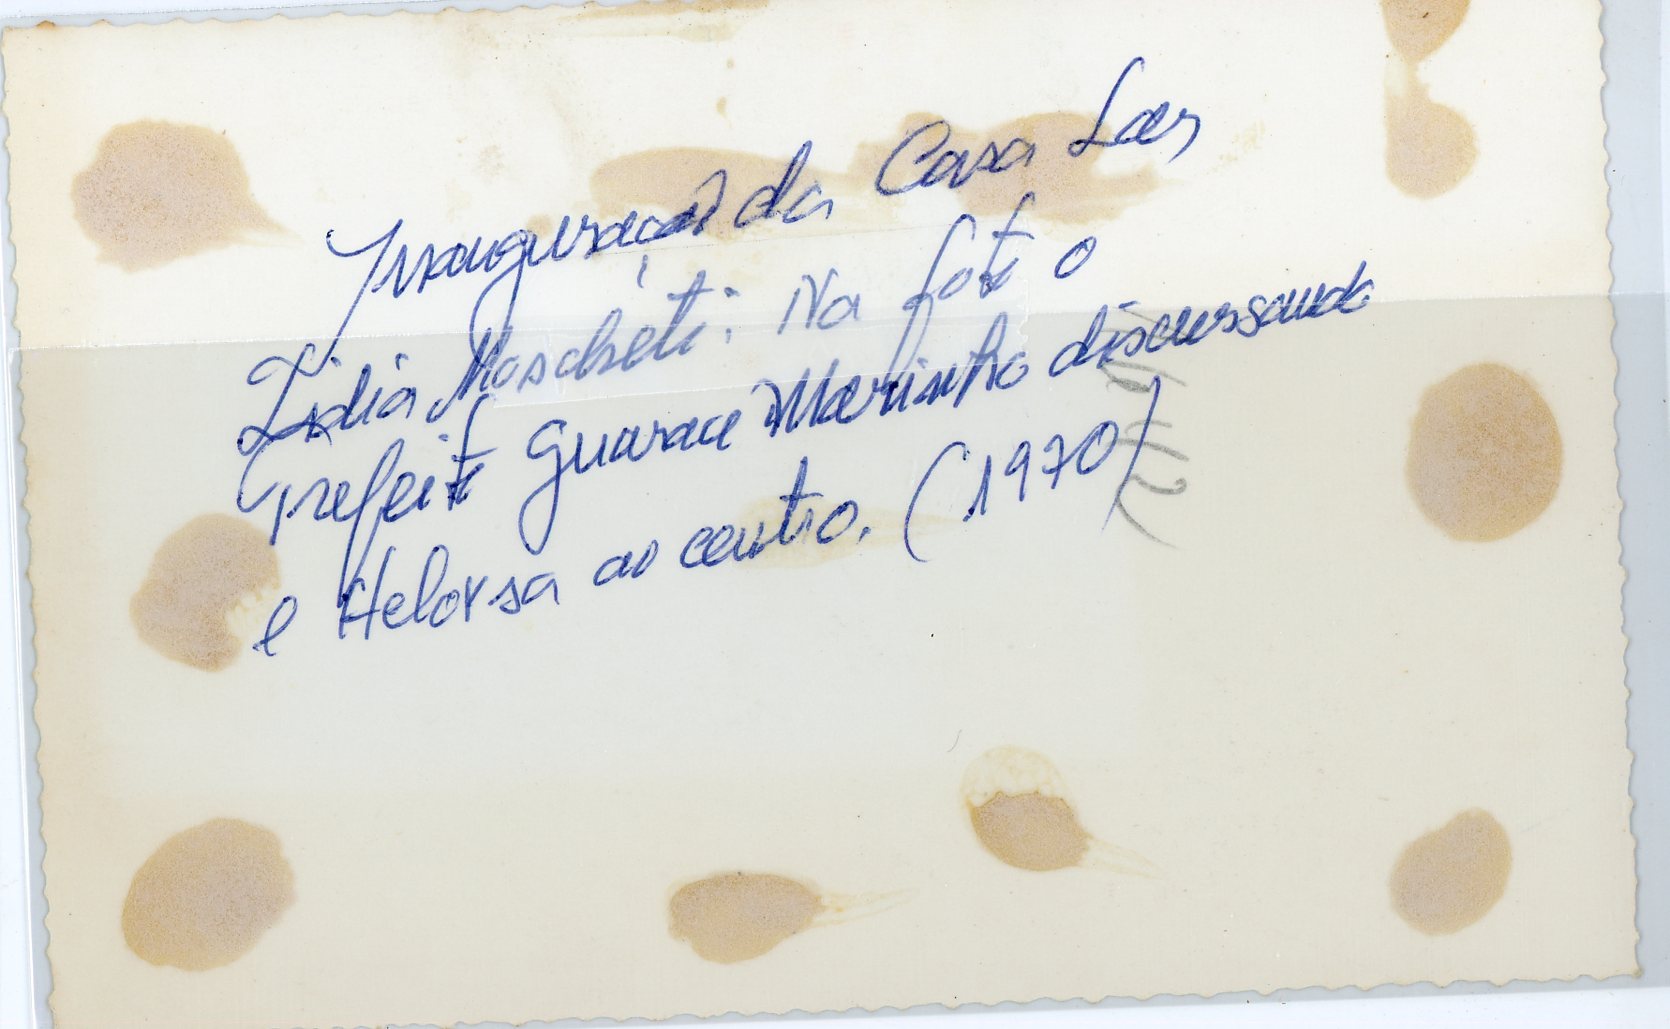 Inauguração da Casa Lar
Lidia Moscheti. Na foto o
Prefeito Guaraci Marinho discurssando
e Heloisa ao centro. (1970)